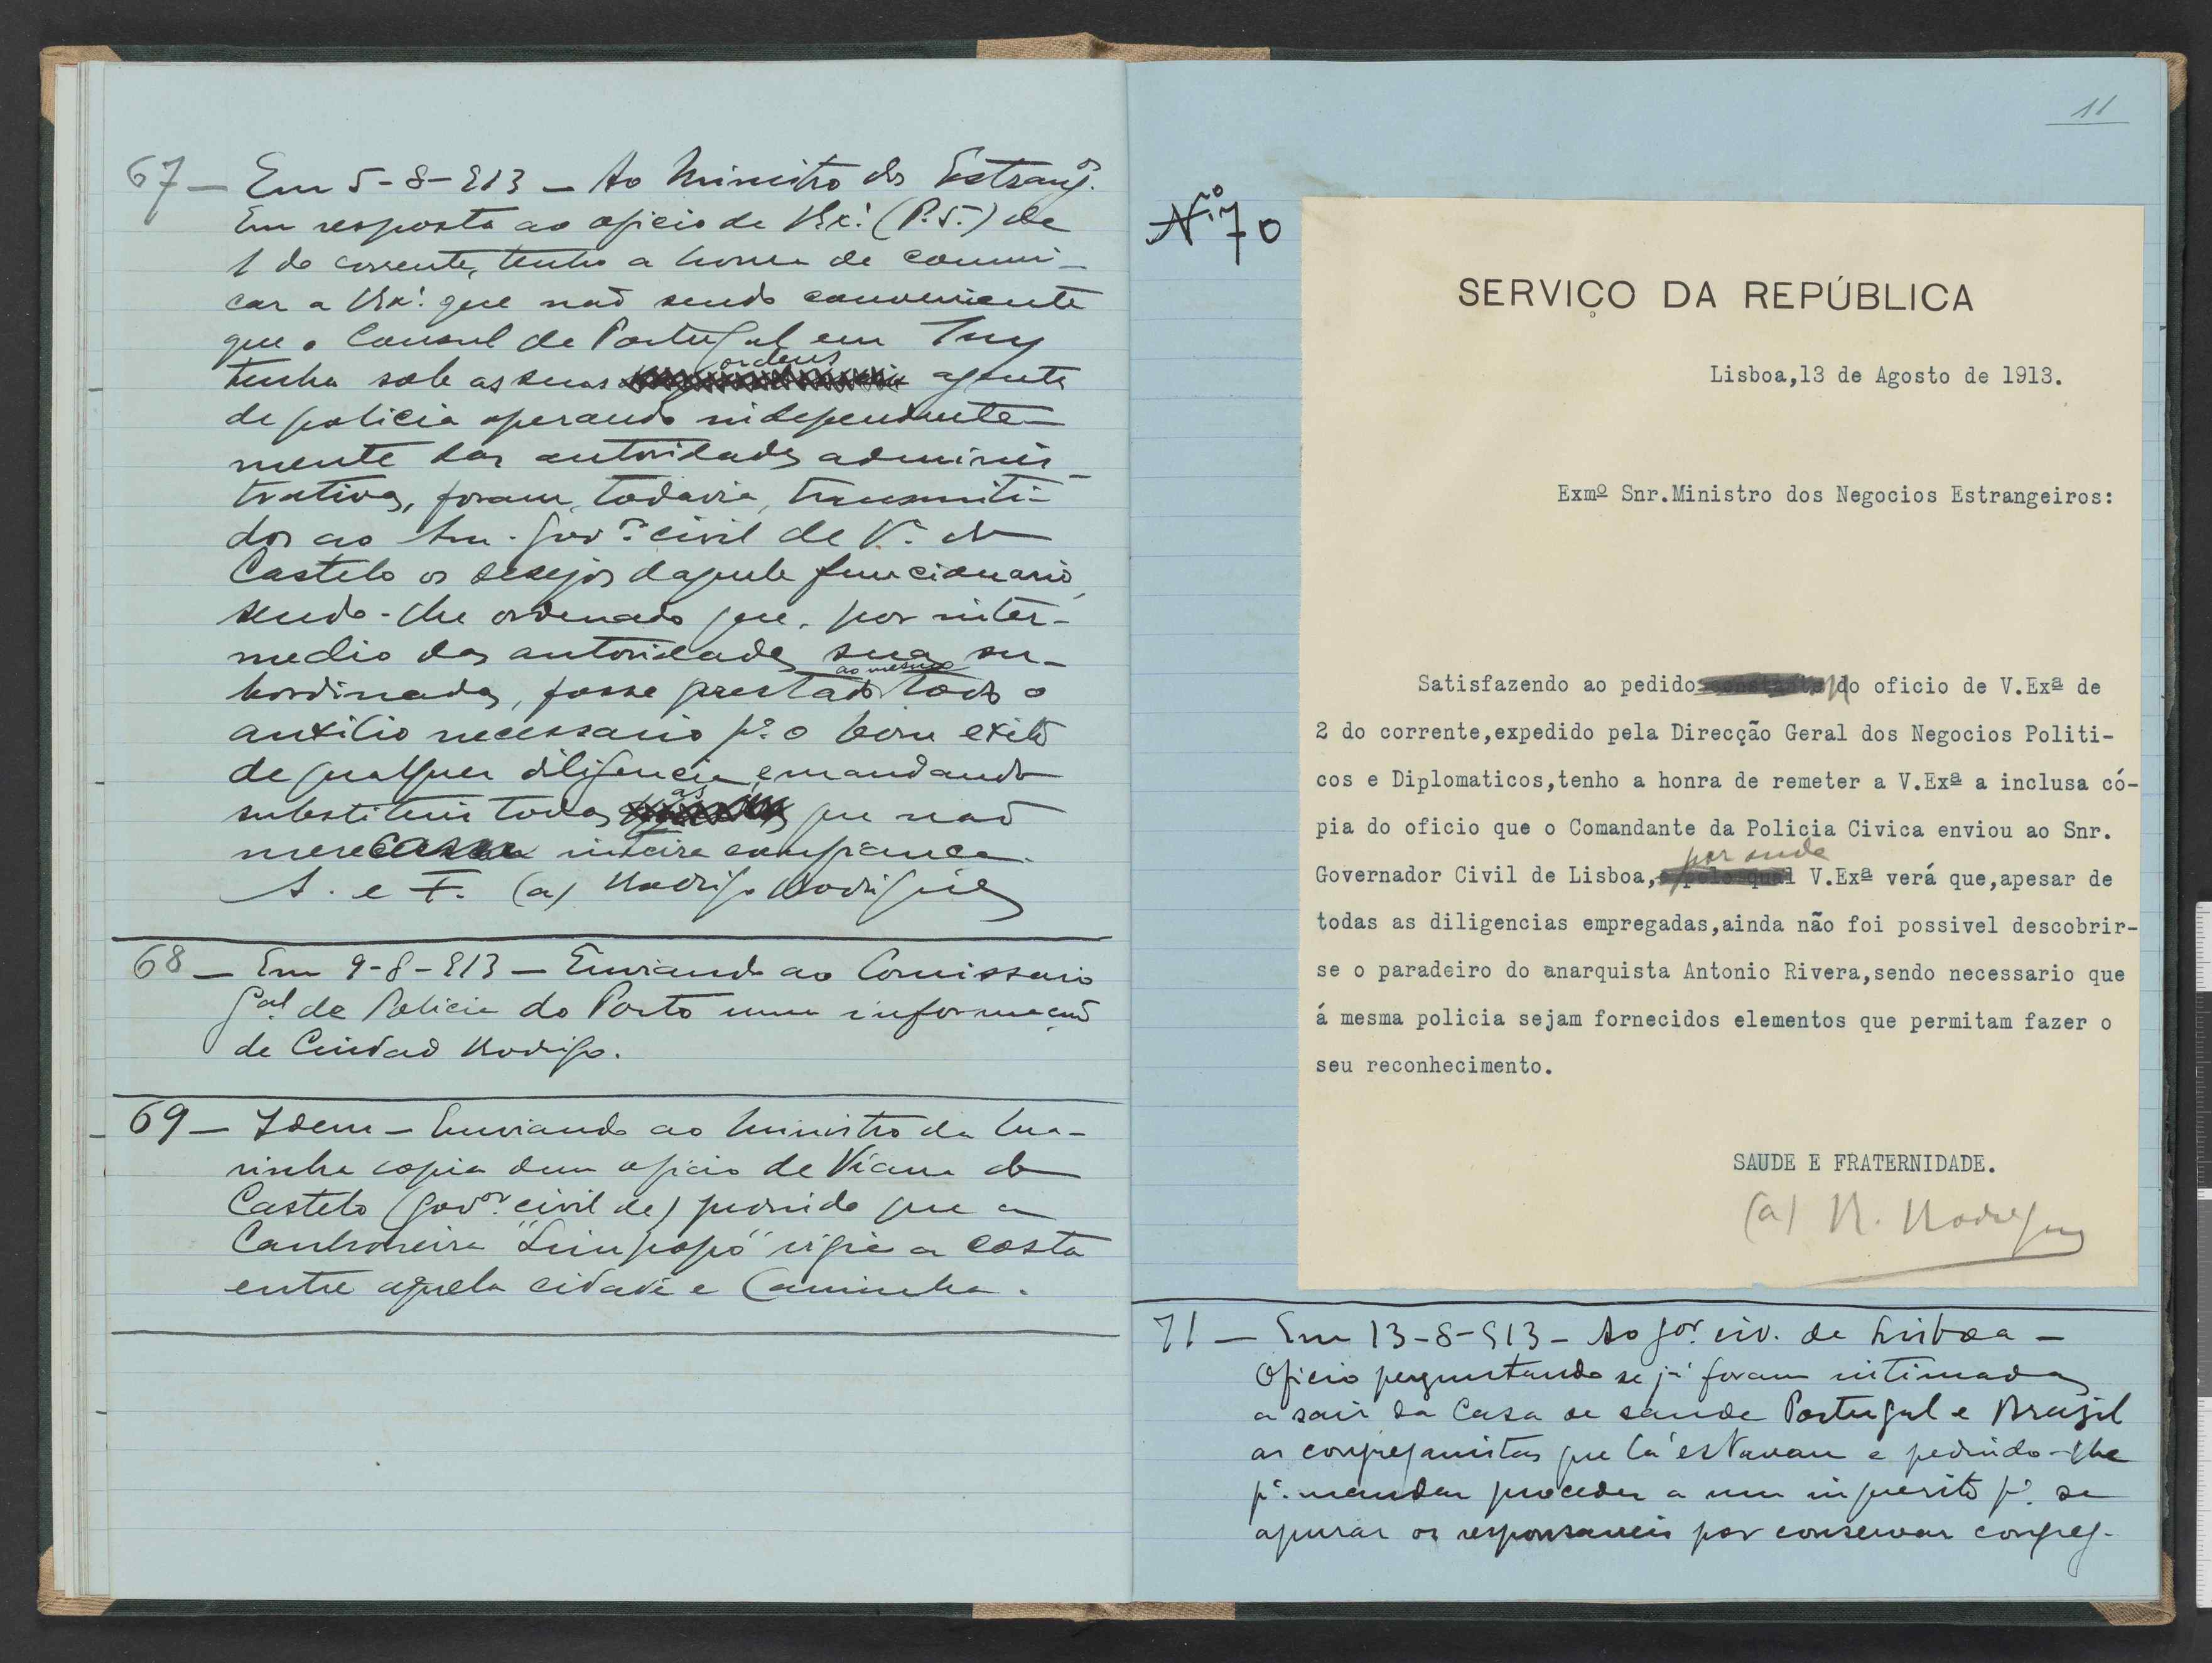 67 — Em 5-8-913 — Ao Ministro dos Estrangos.
Em resposta ao oficio de V.Exª. (P.S.) de
1 do corrente, tenho a honra de comuni-
car a V.Exª. que não sendo conveniente
que o Consul de Portugal em Tuy
tenha sob as suas ordens agente
de policia operando independente-
mente das autoridades adminis-
trativas, foram, todavia, transmiti-
dos ao Snr. Govor. civil de V. do
Castelo os desejos daquele funcionario,
sendo-lhe ordenado que, por inter-
medio das autoridades suas su-
bordinadas, fosse prestado ao mesmo todo o
auxilio necessario pª. o bom exito
de qualquer diligencia, e mandando
substituir todas as que não
mereçam inteira confiança.
S. e F. (a) Rodrigo Rodrigues
68 — Em 9-8-913 — Enviando ao Comissario
Gal. de Policia do Porto uma informação
de Ciudad Rodrigo.
69 — Idem — Enviando ao Ministro da Ma-
rinha copia dum oficio de Viana do
Castelo (Govor. civil de) pedindo que a
Canhoneira "Limpopó" vigie a costa
entre aquela cidade e Caminha.
11
Nº 70
SERVIÇO DA REPÚBLICA
Lisboa,13 de Agosto de 1913.
Exmº Snr.Ministro dos Negocios Estrangeiros:
Satisfazendo ao pedido do oficio de V.Exª de
2 do corrente,expedido pela Direcção Geral dos Negocios Politi-
cos e Diplomaticos,tenho a honra de remeter a V.Exª a inclusa có-
pia do oficio que o Comandante da Policia Civica enviou ao Snr.
Governador Civil de Lisboa, por onde V.Exª verá que,apesar de
todas as diligencias empregadas,ainda não foi possivel descobrir-
se o paradeiro do anarquista Antonio Rivera,sendo necessario que
á mesma policia sejam fornecidos elementos que permitam fazer o
seu reconhecimento.
SAUDE E FRATERNIDADE.
(a) R. Rodrigues
71 — Em 13-8-913 — Ao Gor. civ. de Lisboa —
Oficio perguntando se já foram intimadas
a sair da Casa de saude Portugal e Brazil
as congreganistas que lá estavam e pedindo-lhe
pª. mandar proceder a um inquerito pª. se
apurar os responsaveis por conservar congreg.